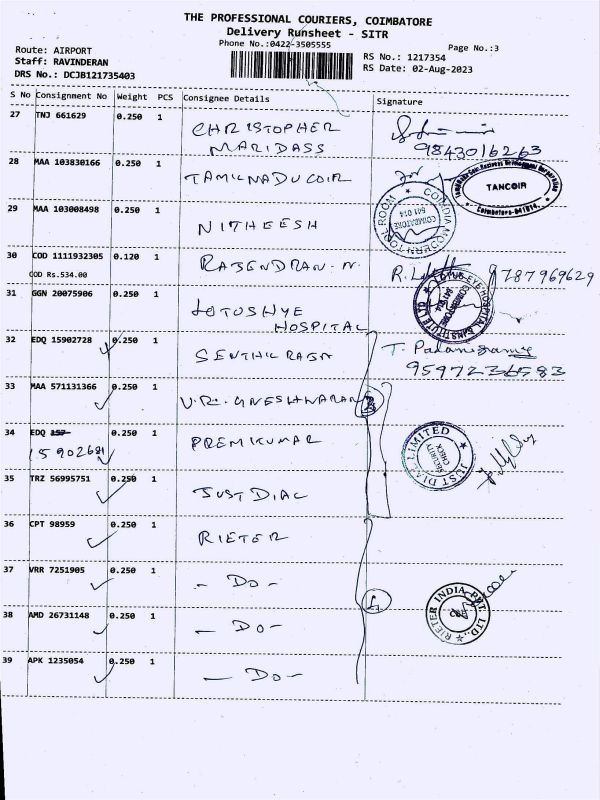 THE PROFESSIONAL COURIERS, COIMBATORE
Delivery Runsheet - SITR
Phone No.:0422-3505555
Page No.:3
Route: AIRPORT
Staff: RAVINDERAN
DRS No.: DCJB121735403
RS No.: 1217354
RS Date: 02-Aug-2023
S No Consignment No Weight PCS Consignee Details Signature
27 TNJ 661629 0.250 1 CHRISTOPHER
MARIDASS
9843016263
28 MAA 103830166 0.250 1 TAMILNADU COIR
TANCOIR
Coimbatore-641014.
29 MAA 103008498 0.250 1 NITHEESH
COIMBATORE
641 014
30 COD 1111932305 0.120 1 RAJENDRAN. N. 9787969629
COD Rs.534.00
31 GGN 20075906 0.250 1 LOTUS HYE
HOSPITAL
32 EDQ 15902728 0.250 1 SENTHIL RAJA
9597236583
33 MAA 571131366 0.250 1 V.R. GNESHWARAN
34 EDQ 157 0.250 1 PREMKUMAR
15902681
JUST DIAL LIMITED
SECURITY
CHECK
35 TRZ 56995751 0.250 1 JUST DIAL
36 CPT 98959 0.250 1 RIETER
37 VRR 7251905 0.250 1 - DO -
4
RIETER INDIA PVT. LTD.,
38 AMD 26731148 0.250 1 - DO -
39 APK 1235054 0.250 1 - DO -